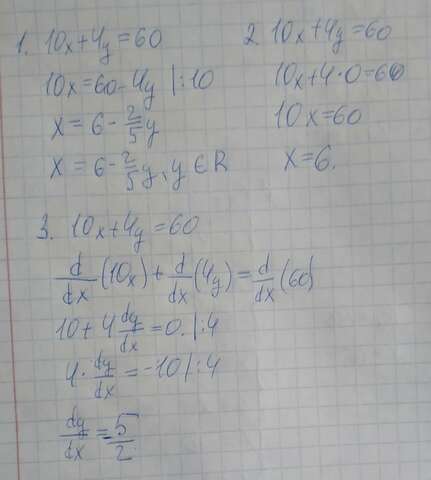 1. 10x+4y=60
10x=60-4y |:10
x=6-2/5y
x=6-2/5y, y∈R
2. 10x+4y=60
10x+4·0=60
10x=60
x=6.
3. 10x+4y=60
d/dx(10x)+d/dx(4y)=d/dx(60)
10+4dy/dx=0.|:4
4·dy/dx=-10|:4
dy/dx=-5/2